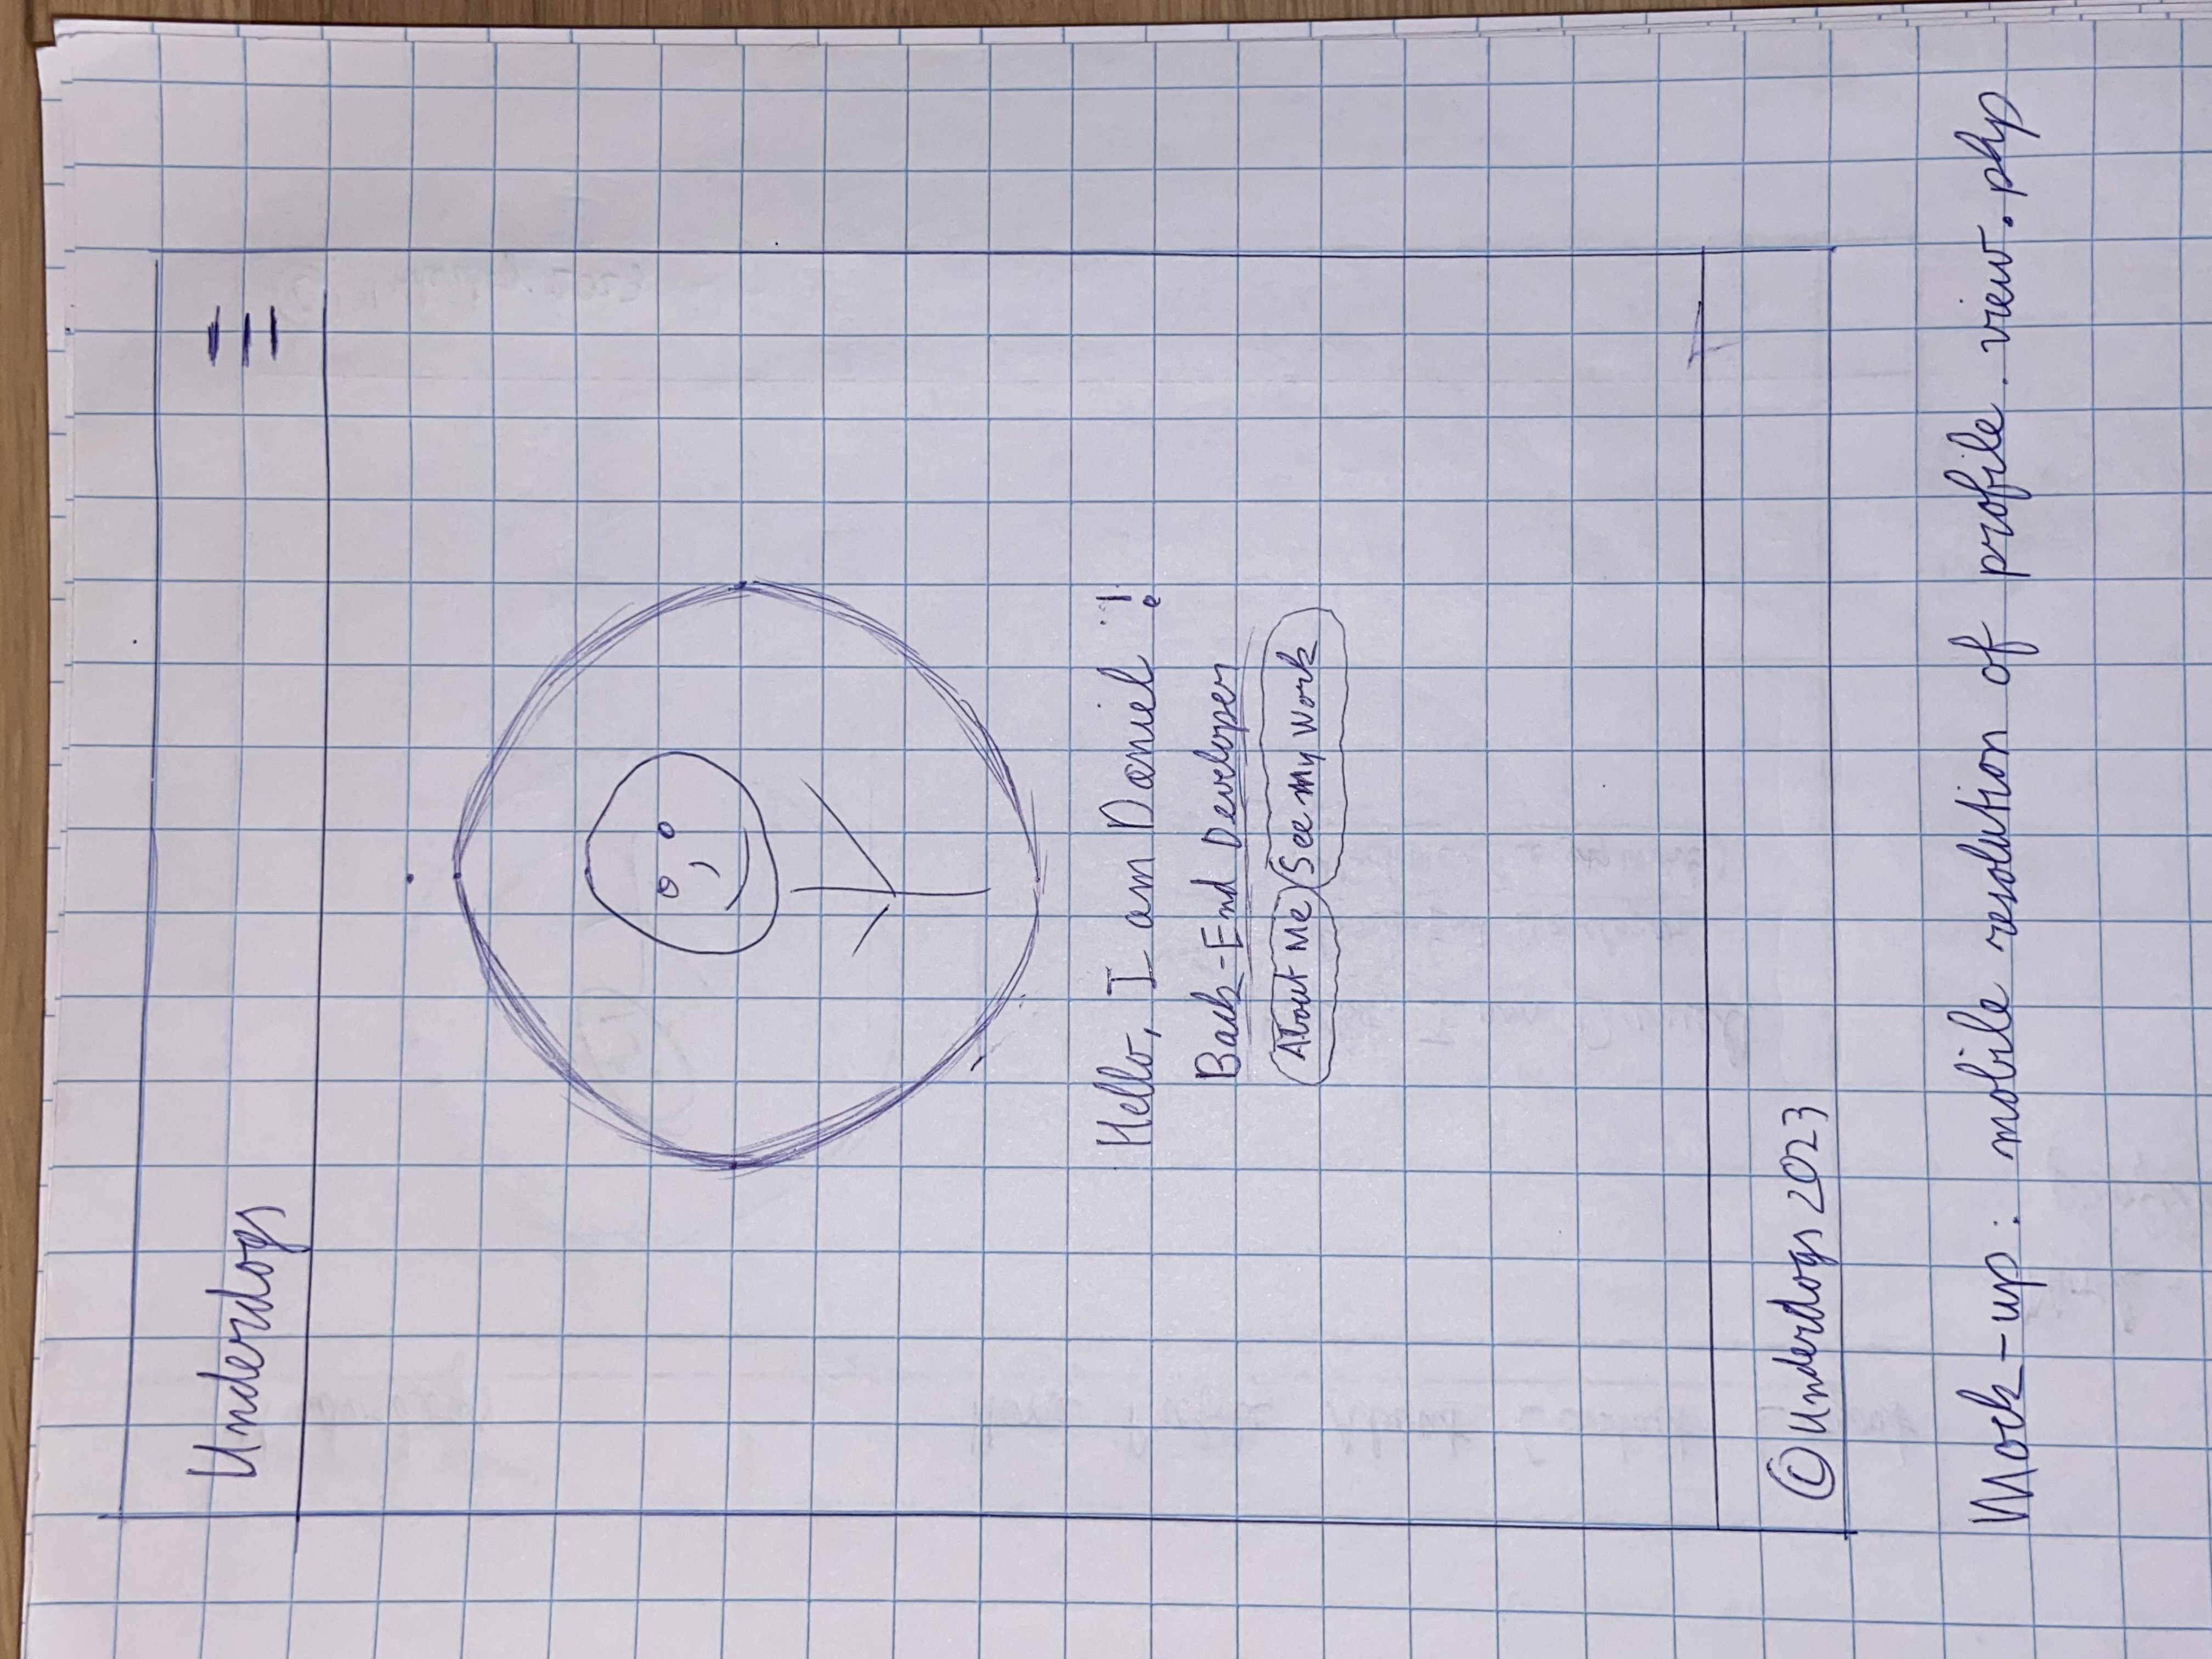 Underdogs
Hello, I am Daniel !
Back-End Developer
About Me See My Work
© Underdogs 2023
Mock-up: mobile resolution of profile.view.php